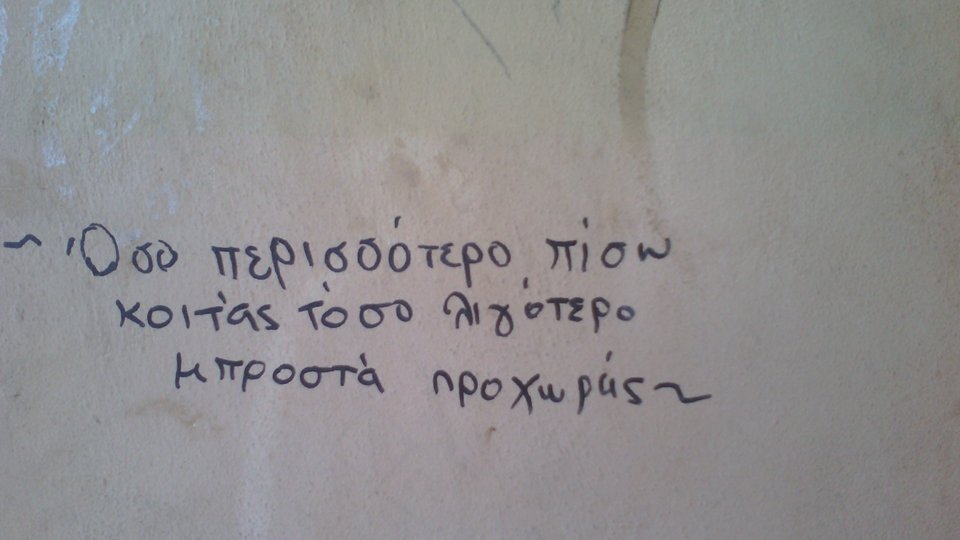 ~ Όσο περισσότερο πίσω
κοιτάς τόσο λιγότερο
μπροστά προχωράς ~